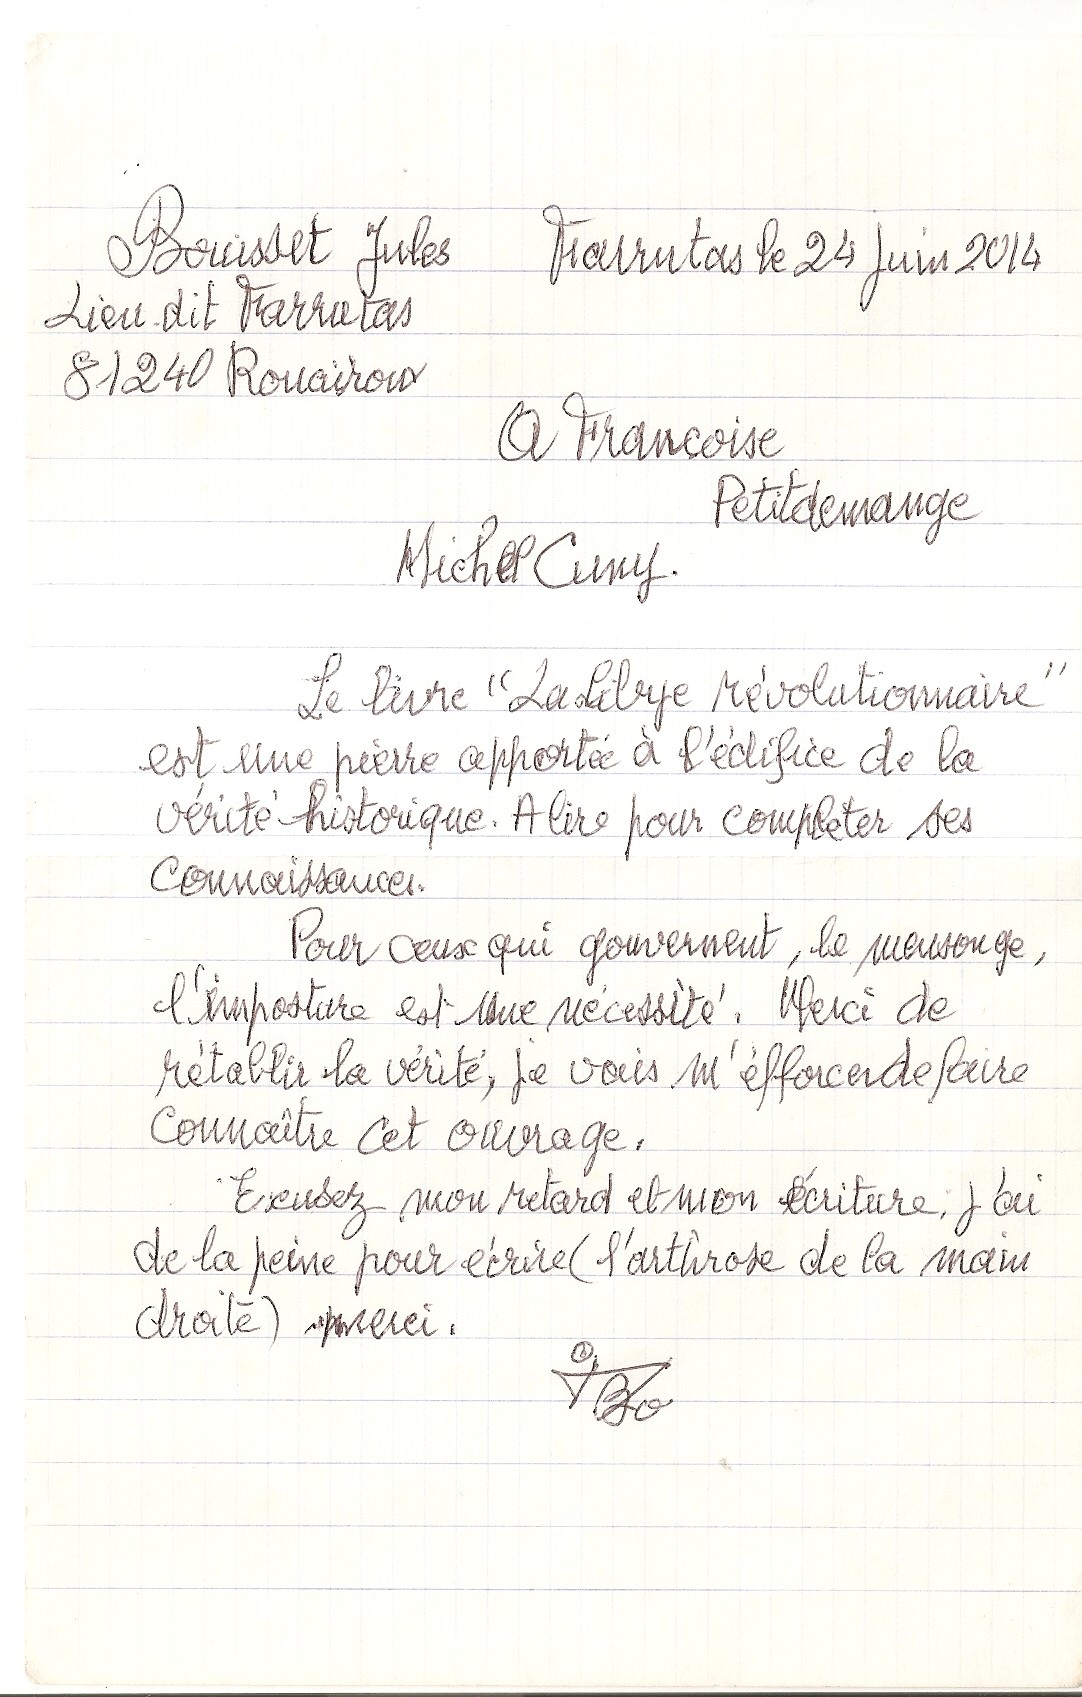 Bouisset Jules Farrutas le 24 Juin 2014
Lieu-dit Farrutas
81240 Rouairoux
A Françoise
Petitdemange
Michel Cuny.
Le livre "La Libye révolutionnaire"
est une pierre apportée à l'édifice de la
vérité historique. A lire pour compléter ses
connaissances.
Pour ceux qui gouvernent, le mensonge,
l'imposture est une nécessité. Merci de
rétablir la vérité, je vais m'éfforcer de faire
connaître cet ouvrage.
Excusez mon retard et mon écriture, j'ai
de la peine pour écrire (l'arthrose de la main
droite) merci.